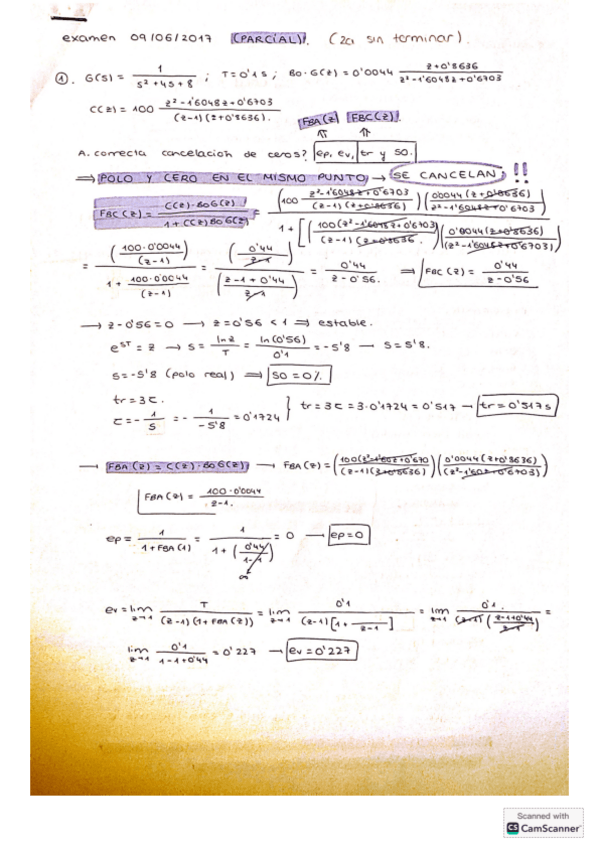 examen 09/06/2017 (PARCIAL). (2a sin terminar).
① . G(s) = 1 / (s² + 4s + 8) ; T = 0'1s ; B0·G(z) = 0'0044 (z+0'8636) / (z²-1'6048z+0'6703)
C(z) = 100 (z²-1'6048z+0'6703) / ((z-1)(z+0'8636)).
FBA(z) FBC(z).
A. correcta cancelacion de ceros? ep, ev, tr y SO.
⇒ POLO Y CERO EN EL MISMO PUNTO → SE CANCELAN !!
FBC(z) = C(z)·B0G(z) / (1 + C(z)B0G(z)) = (100 (z²-1'6048z+0'6703) / ((z-1)(z+0'8636))) (0'0044(z+0'8636) / (z²-1'6048z+0'6703)) / (1 + [(100(z²-1'6048z+0'6703) / ((z-1)(z+0'8636))) (0'0044(z+0'8636) / (z²-1'6048z+0'6703))])
= (100·0'0044 / (z-1)) / (1 + 100·0'0044 / (z-1)) = (0'44 / (z-1)) / ((z-1+0'44) / (z-1)) = 0'44 / (z-0'56) ⇒ FBC(z) = 0'44 / (z-0'56)
→ z-0'56=0 → z=0'56 < 1 ⇒ estable.
e^ST = z → s = ln z / T = ln(0'56) / 0'1 = -5'8 → s = 5'8.
s = -5'8 (polo real) ⇒ SO = 0%.
tr = 3τ.
τ = - 1/s = - 1/-5'8 = 0'1724 } tr = 3τ = 3·0'1724 = 0'517 → tr = 0'517s
→ FBA(z) = C(z)·B0G(z) → FBA(z) = (100(z²-1'60z+0'670) / ((z-1)(z+0'8636))) (0'0044(z+0'8636) / (z²-1'60z+0'6703))
FBA(z) = 100·0'0044 / z-1.
ep = 1 / (1+FBA(1)) = 1 / (1 + (0'44 / 1-1)) = 0 → ep=0
∞
ev = lim z→1 T / ((z-1)(1+FBA(z))) = lim z→1 0'1 / ((z-1)[1 + / z-1]) = lim z→1 0'1. / ((z-1)(z-1+0'44 / z-1)) =
lim z→1 0'1 / (1-1+0'44) = 0'227 → ev = 0'227
Scanned with
CS CamScanner